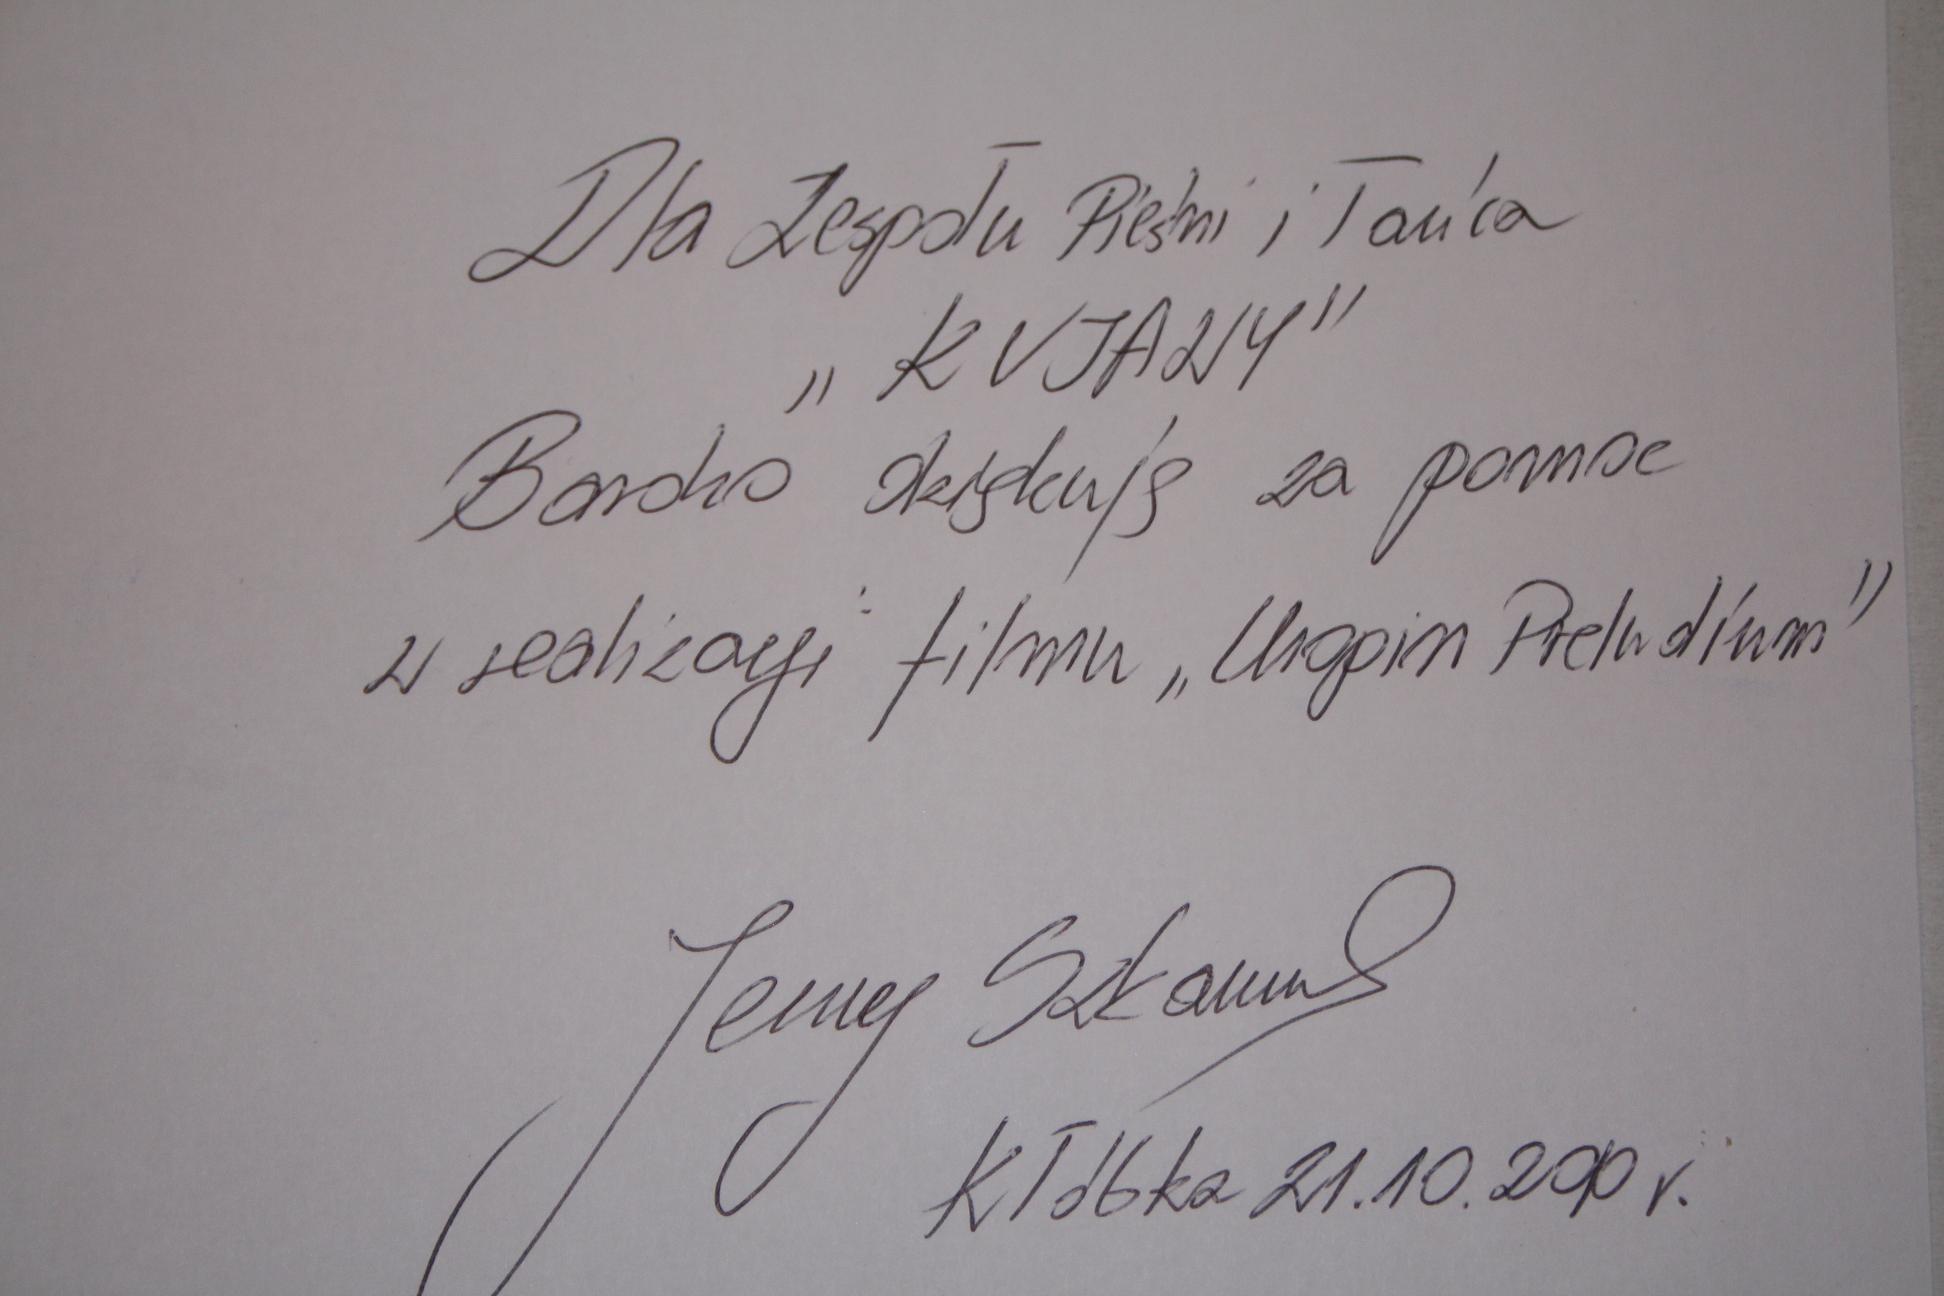 Dla Zespołu Pieśni i Tańca
„KUJAWY”
Bardzo dziękuję za pomoc
w realizacji filmu „Chopin Preludium”
Jerzy
Kłóbka 21.10. r.